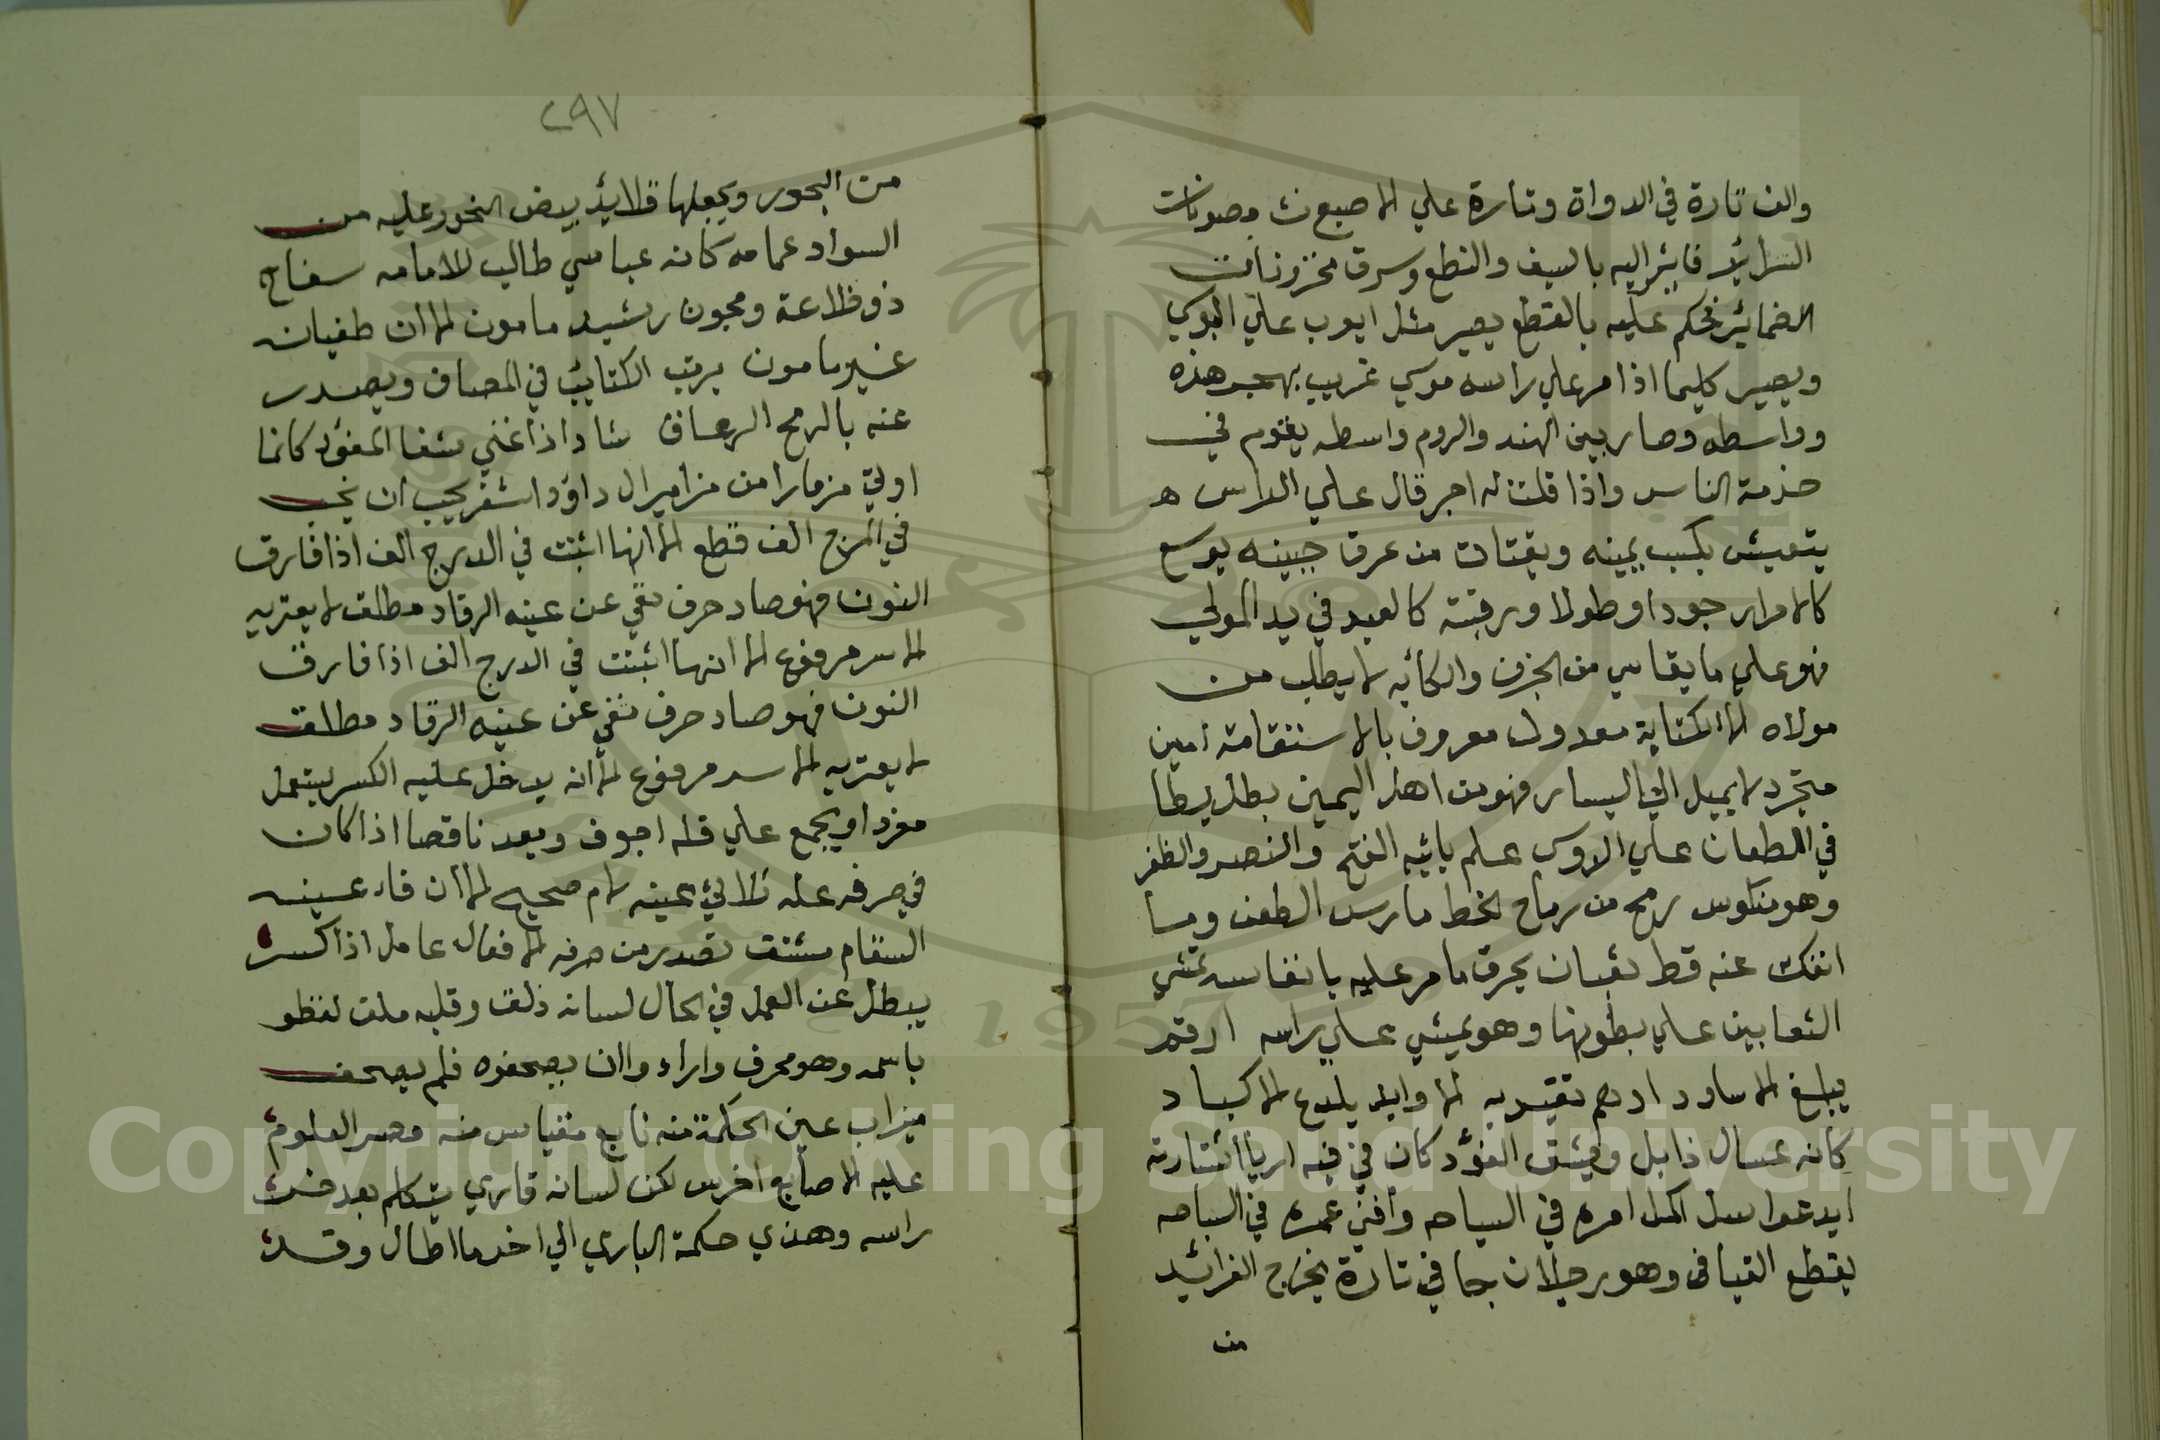 والف تارة في الدواة وتارة علي الاصبع نث مصونات
السرائر فابتر اليه بالسيف والنطع وسرق مخزونات
الضمائر فحكم عليه بالقطع يصير مثل ايوب علي البوكي
ويصير كليما اذا مر علي راسه موسي غريب بهجر هذه
وواسطه وصار بين الهند والروم واسطه يقوم في
خدمة الناس واذا قلت له اجر قال علي الراس ه
يتعيش بكسب يمينه ويقتات من عرق جبينه يوسع
كالامرا جودا وطولا ورقبته كالعبد في يد المولي
فهو علي ما يقاسي من الحرف والكآبه لا يطلب من
مولاه الا الكتابة معدول معروف بالاستقامة امين
متجرد لا يميل الي اليسار فهو من اهل اليمين بطل يطا
في الطعان علي الروس علم ياتيه الفتح والنصر والظفر
وهو منكوس رمح من رماح الخط مارس الطعن وما
انفك عنه قط ثعبان يحرق ما مر عليه بانفاسه تمشي
الثعابين علي بطونها وهو يمشي علي راسه ارقم
يبلغ الاساود ادهم تقيد به الاوابد يلدع الاكباد
كانه عسال ذابل ويشق الفؤد كان في فيه اريا اشتارته
ايد عواسل اكمل امره في السياحه وافني عمره في السباحه
يقطع الفيافي وهو رجلان حافي تارة يخرج الفرائد
من
٢٩٧
من البحور ويجعلها قلايد بيض النحور عليه من
السواد عمامه كانه عباسي طالب للامامه سفاح
ذو خلاعة ومجون رشيد مامون الا ان طغيانه
غير مامون يرتب الكتايب في المصاف ويصدر
عنه بالرمح الرعاف شاد اذا غني شفا المفؤد كانما
اوتي مزمارا من مزامير ال داود اشقر يجب ان يخب
في المرح الف قطع الا انها اثبتت في الدرج الف اذا فارق
النون فهو صاد حرف نفي عن عينه الرقاد مطلق لا يعتريه
الاسر مرفوع الا انها اثبتت في الدرج الف اذا فارق
النون فهو صاد حرف نفي عن عينه الرقاد مطلق
لا يعتريه الاسر مرفوع الا انه يدخل عليه الكسر يستعمل
مفردا ويجمع علي قله اجوف ويعد ناقصا اذا كان
في حرفه عله ثلاثي عينه لام صحيح الا ان فاء عينه
السقام مشتق تصدر من حرفه الافعال عامل اذا كسر
يبطل عن العمل في الحال لسانه ذلق وقلبه ملق لفظو
باسمه وهو محرف وارادوا ان يصحفوه فلم يصحف
ميزاب عين الحكمة منه نابع مقياس منه مصر العلوم
عليه الاصابع اخرس لكن لسانه قاري يتكلم بعد قطع
راسه وهذي حكمة الباري الي اخر ما اطال وقد